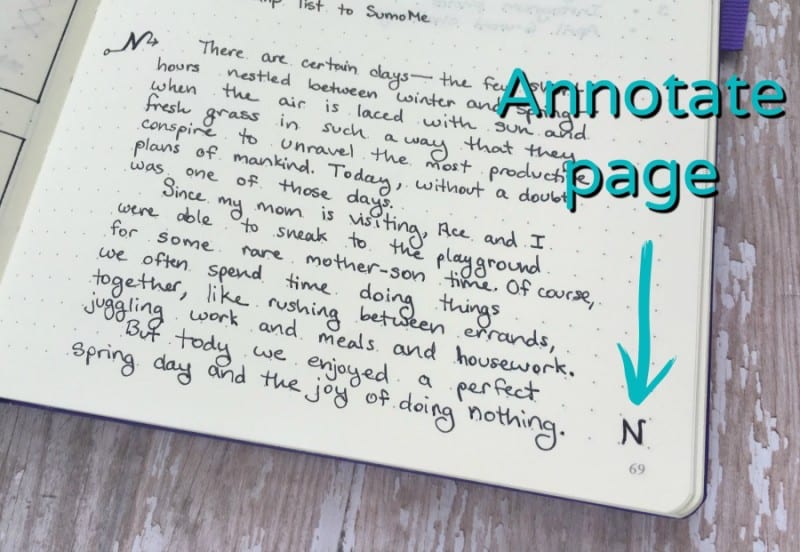 list to SumoMe
N There are certain days— the few
hours nestled between winter and Spring
when the air is laced with sun and
fresh grass in such a way that they
conspire to unravel the most productive
plans of mankind. Today, without a doubt
was one of those days.
Since my mom is visiting, Ace and I
were able to sneak to the playground
for some rare mother-son time. Of course,
we often spend time doing things
together, like rushing between errands,
juggling work and meals and housework.
But tody we enjoyed a perfect
Spring day and the joy of doing nothing.
Annotate
page
N
69